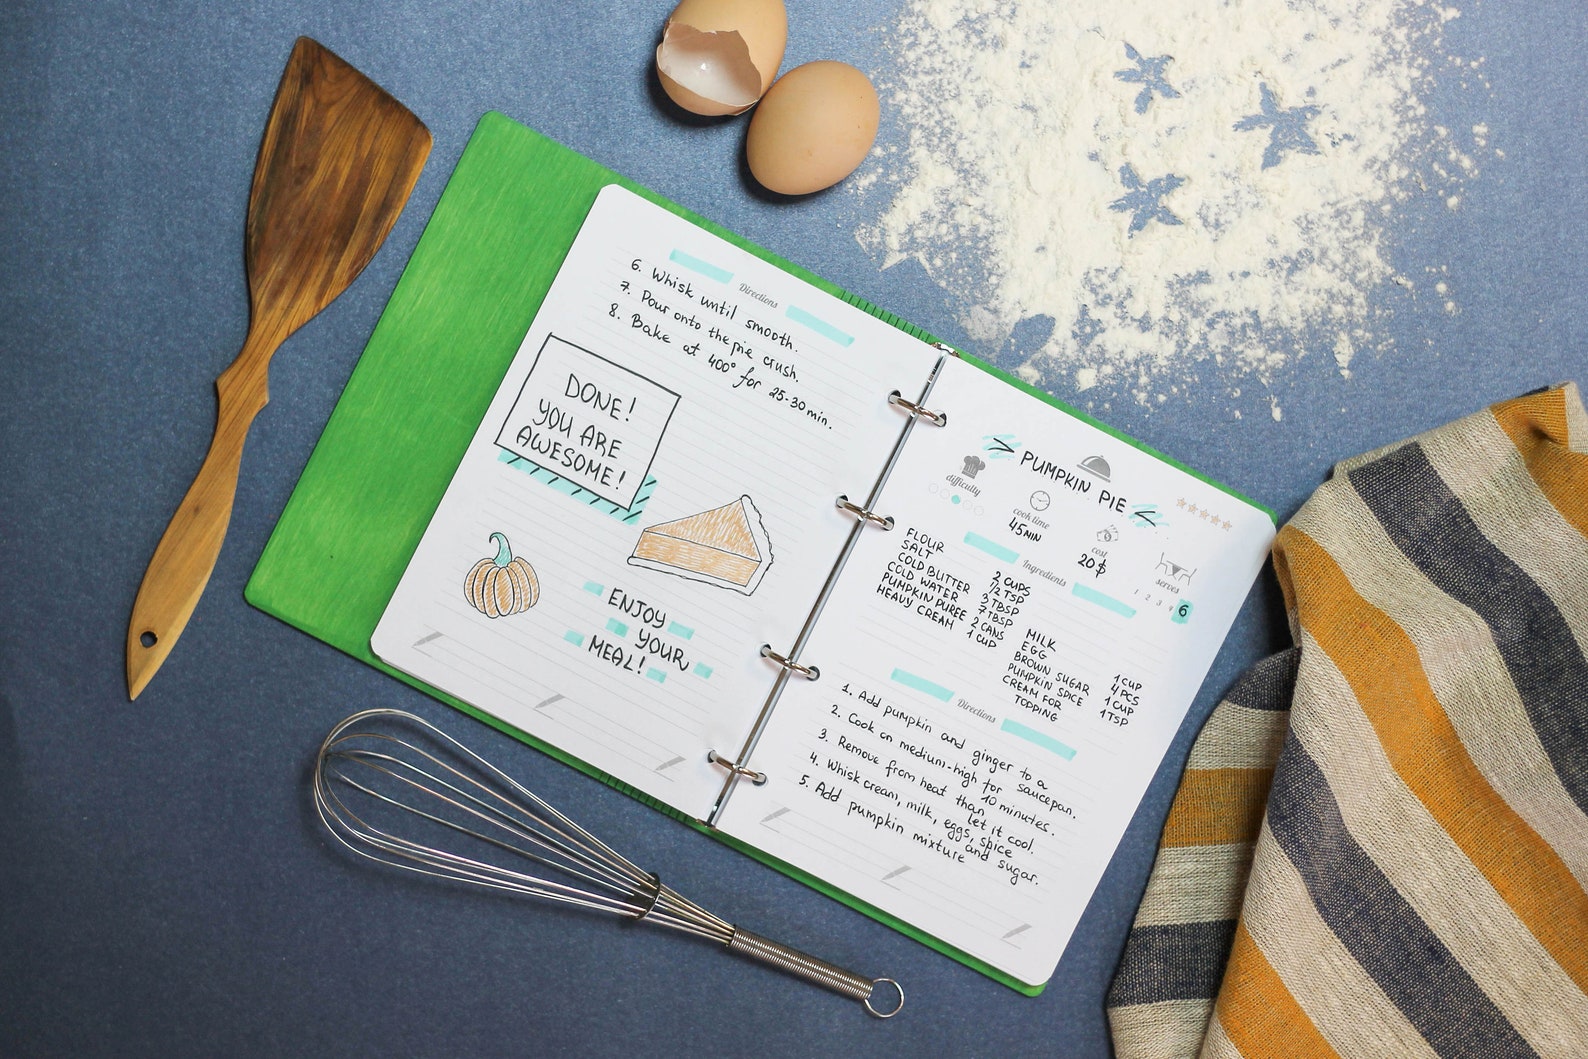 Directions
6. Whisk until smooth.
7. Pour onto the pie crush.
8. Bake at 400° for 25-30 min.
DONE!
YOU ARE
AWESOME!
ENJOY
YOUR
MEAL!
PUMPKIN PIE
difficulty
cook time
45 MIN
cost
20 $
serves
1 2 3 4 6
Ingredients
FLOUR 2 CUPS
SALT 1/2 TSP
COLD BUTTER 3 TBSP
COLD WATER 7 TBSP
PUMPKIN PUREE 2 CANS
HEAVY CREAM 1 CUP
MILK 1 CUP
EGG 4 PCS
BROWN SUGAR 1 CUP
PUMPKIN SPICE 1 TSP
CREAM FOR
TOPPING
Directions
1. Add pumpkin and ginger to a
saucepan.
2. Cook on medium-high for
10 minutes.
3. Remove from heat than
let it cool.
4. Whisk cream, milk, eggs, spice
and sugar.
5. Add pumpkin mixture